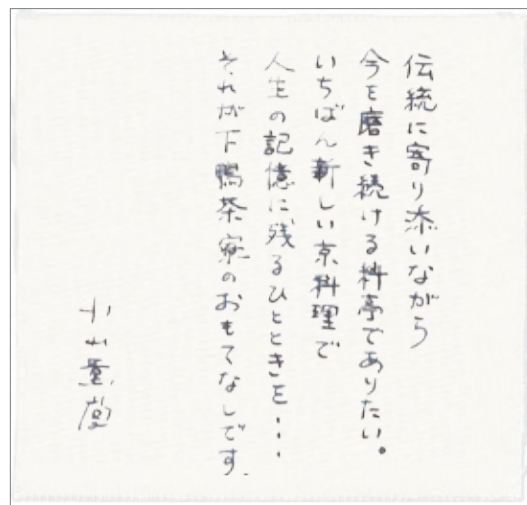 伝統に寄り添いながら
今を磨き続ける料亭でありたい。
いちばん新しい京料理で
人生の記憶に残るひとときを・・・
それが下鴨茶寮のおもてなしです.
小山薫堂